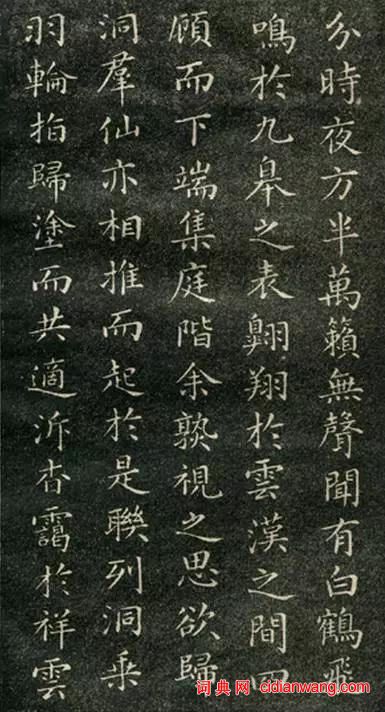 分時夜方半萬籟無聲聞有白鶴飛
鳴於九皋之表翺翔於雲漢之間囬
顧而下端集庭階余孰視之思欲歸
洞羣仙亦相推而起於是聯列洞乗
羽輪指歸塗而共適泝杳靄於祥雲
词典网 cidianwang.com